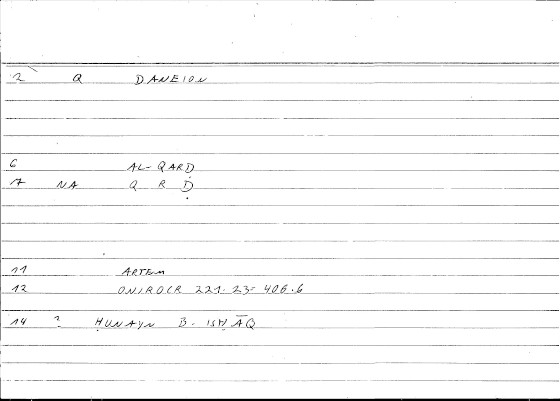 2 Q DANEION
6 AL-QARḌ
7 NA Q R Ḍ
11 ARTEM
12 ONIROCR 221.23 = 406.6
14 ? ḤUNAYN B. ISḤĀQ